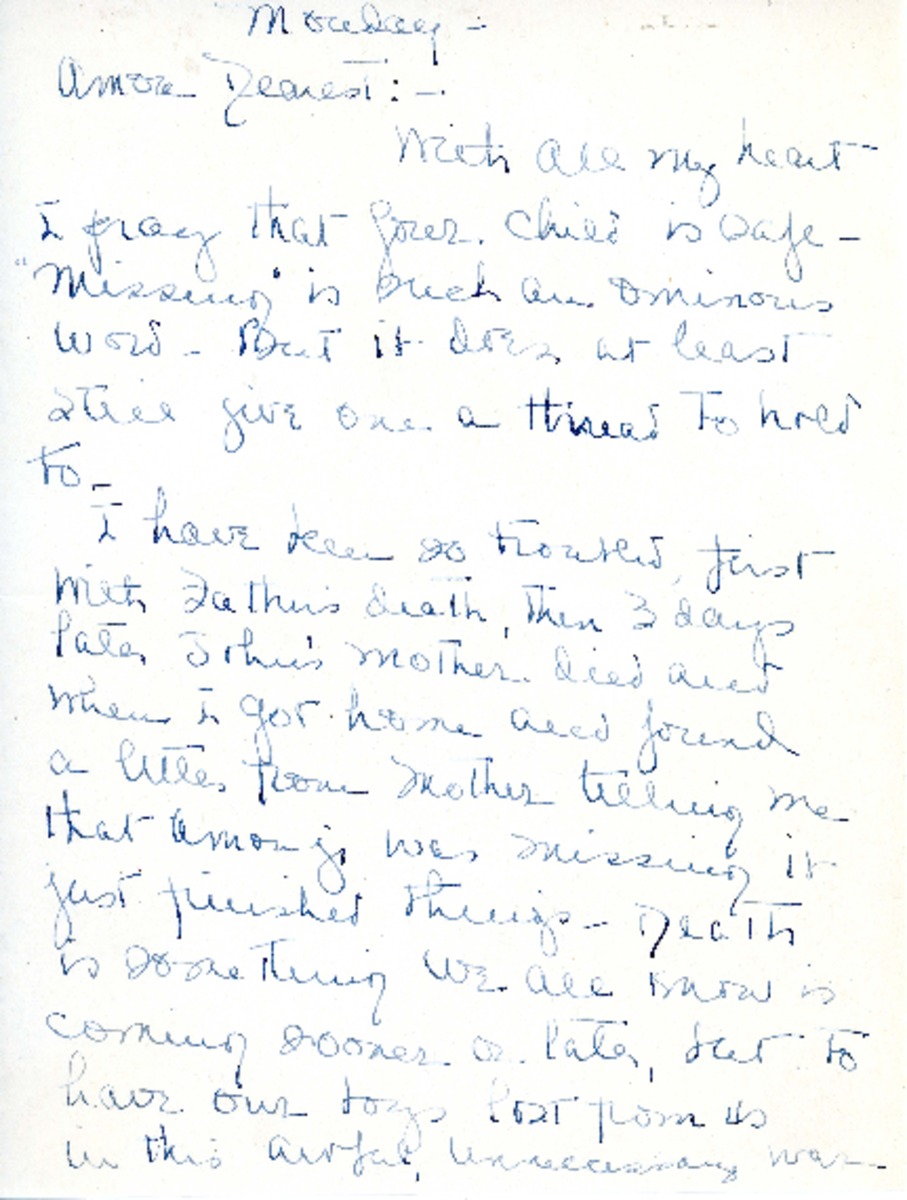 Monday -
Amon Dearest: -
With all my heart -
I pray that your child is safe -
"Missing" is such an ominous
word - But it does at least
still give one a thread to hold
to -
I have been so troubled, first
with Father's death, then 3 days
later John's mother died and
when I got home and found
a letter from Mother telling me
that Amon Jr, was missing it
just finished things - Death
is something we all know is
coming sooner or later, but to
have our boys lost from us
in this awful, unnecessary war -